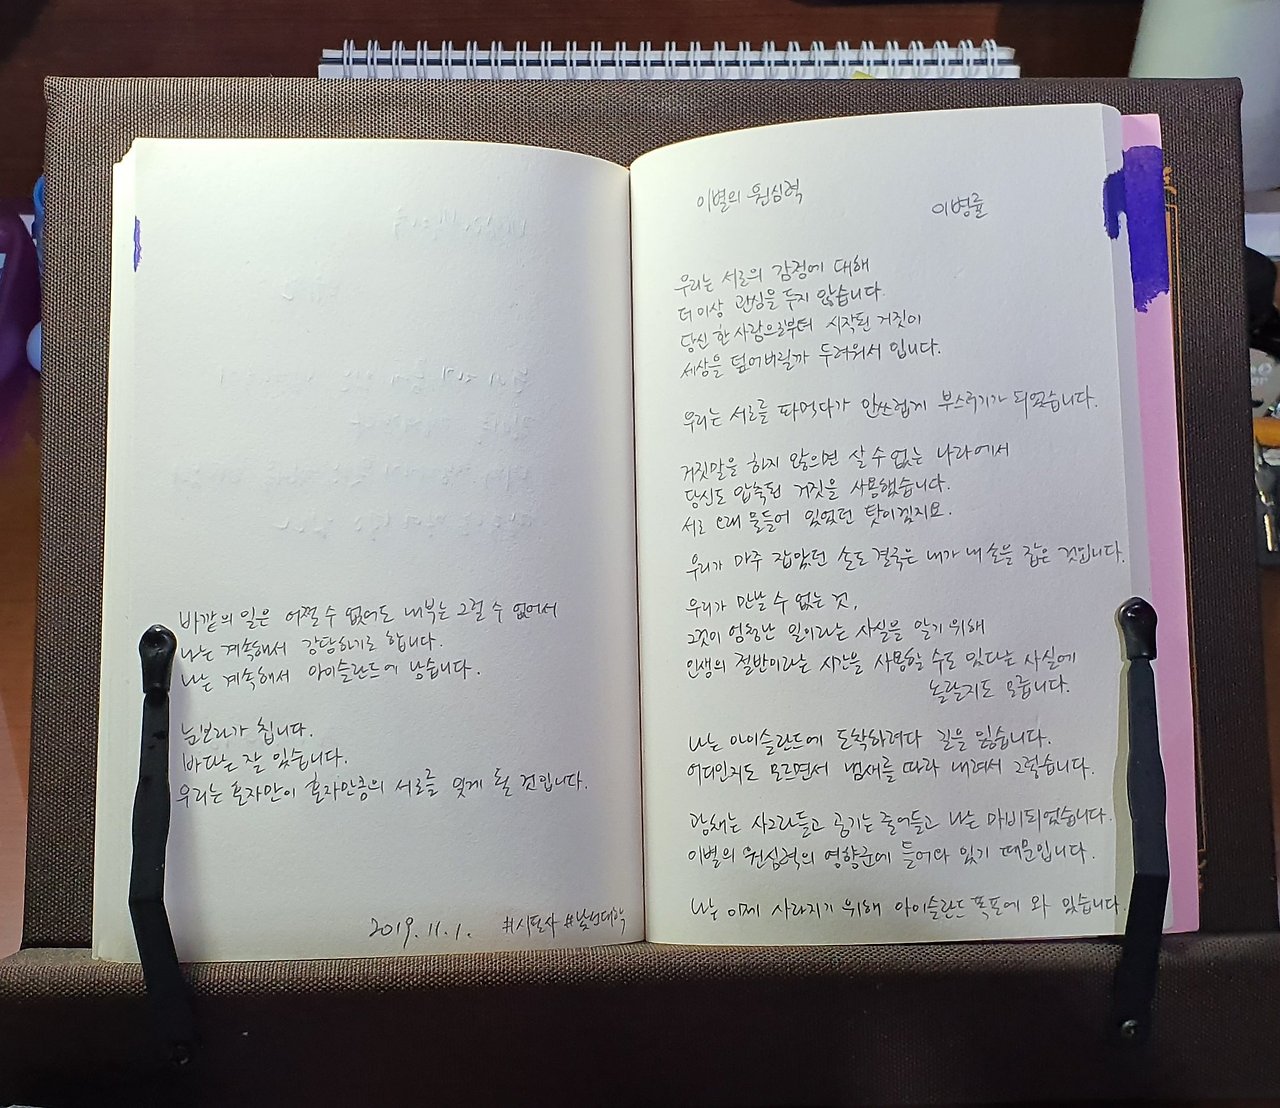 이별의 원심력
이병률
우리는 서로의 감정에 대해
더 이상 관심을 두지 않습니다.
당신 한 사람으로부터 시작된 거짓이
세상을 덮어버릴까 두려워서 입니다.
우리는 서로를 파먹다가 안쓰럽게 부스러기가 되었습니다.
거짓말을 하지 않으면 살 수 없는 나라에서
당신도 압축된 거짓을 사용했습니다.
서로 오래 물들어 있었던 탓이겠지요.
우리가 마주 잡았던 손도 결국은 내가 내 손을 잡은 것입니다.
우리가 만날 수 없는 것,
그것이 엄청난 일이라는 사실을 알기 위해
인생의 절반이라는 시간을 사용할 수도 있다는 사실에
놀랄지도 모릅니다.
나는 아이슬란드에 도착하려다 길을 잃습니다.
어디인지도 모르면서 냄새를 따라 내려서 그렇습니다.
광채는 사그라들고 공기는 줄어들고 나는 마비되었습니다.
이별의 원심력의 영향권에 들어와 있기 때문입니다.
나는 이제 사라지기 위해 아이슬란드 폭포에 와 있습니다.
바깥의 일은 어쩔 수 있어도 내부는 그럴 수 없어서
나는 계속해서 감당하기로 합니다.
나는 계속해서 아이슬란드에 남습니다.
눈보라가 칩니다.
바다는 잘 있습니다.
우리는 혼자만이 혼자만큼의 서로를 잊게 될 것입니다.
2019. 11. 1. #시필사 #낯선대학